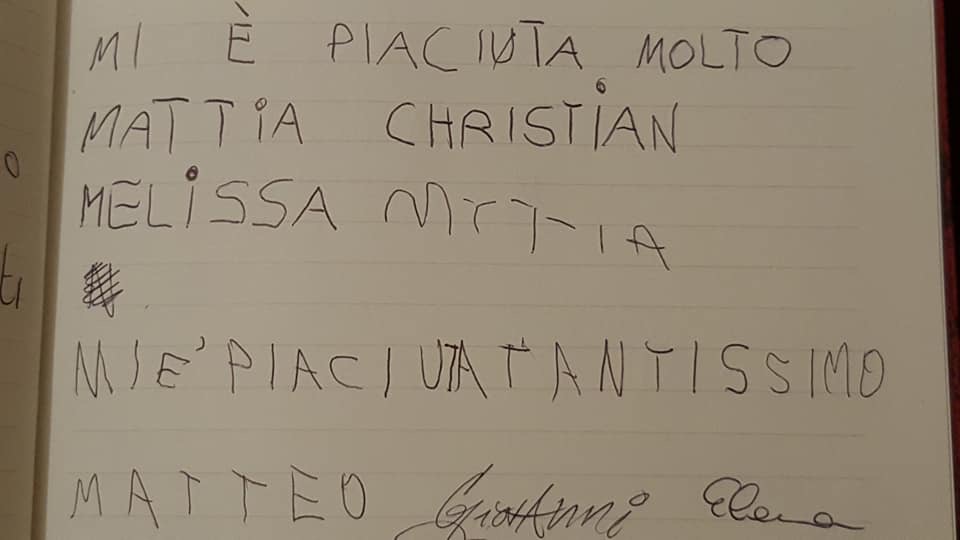 MI È PIACIUTA MOLTO
MATTIA CHRISTIAN
MELISSA MTTIA
MI E' PIACIUTA TANTISSIMO
MATTEO Giovanni Elena